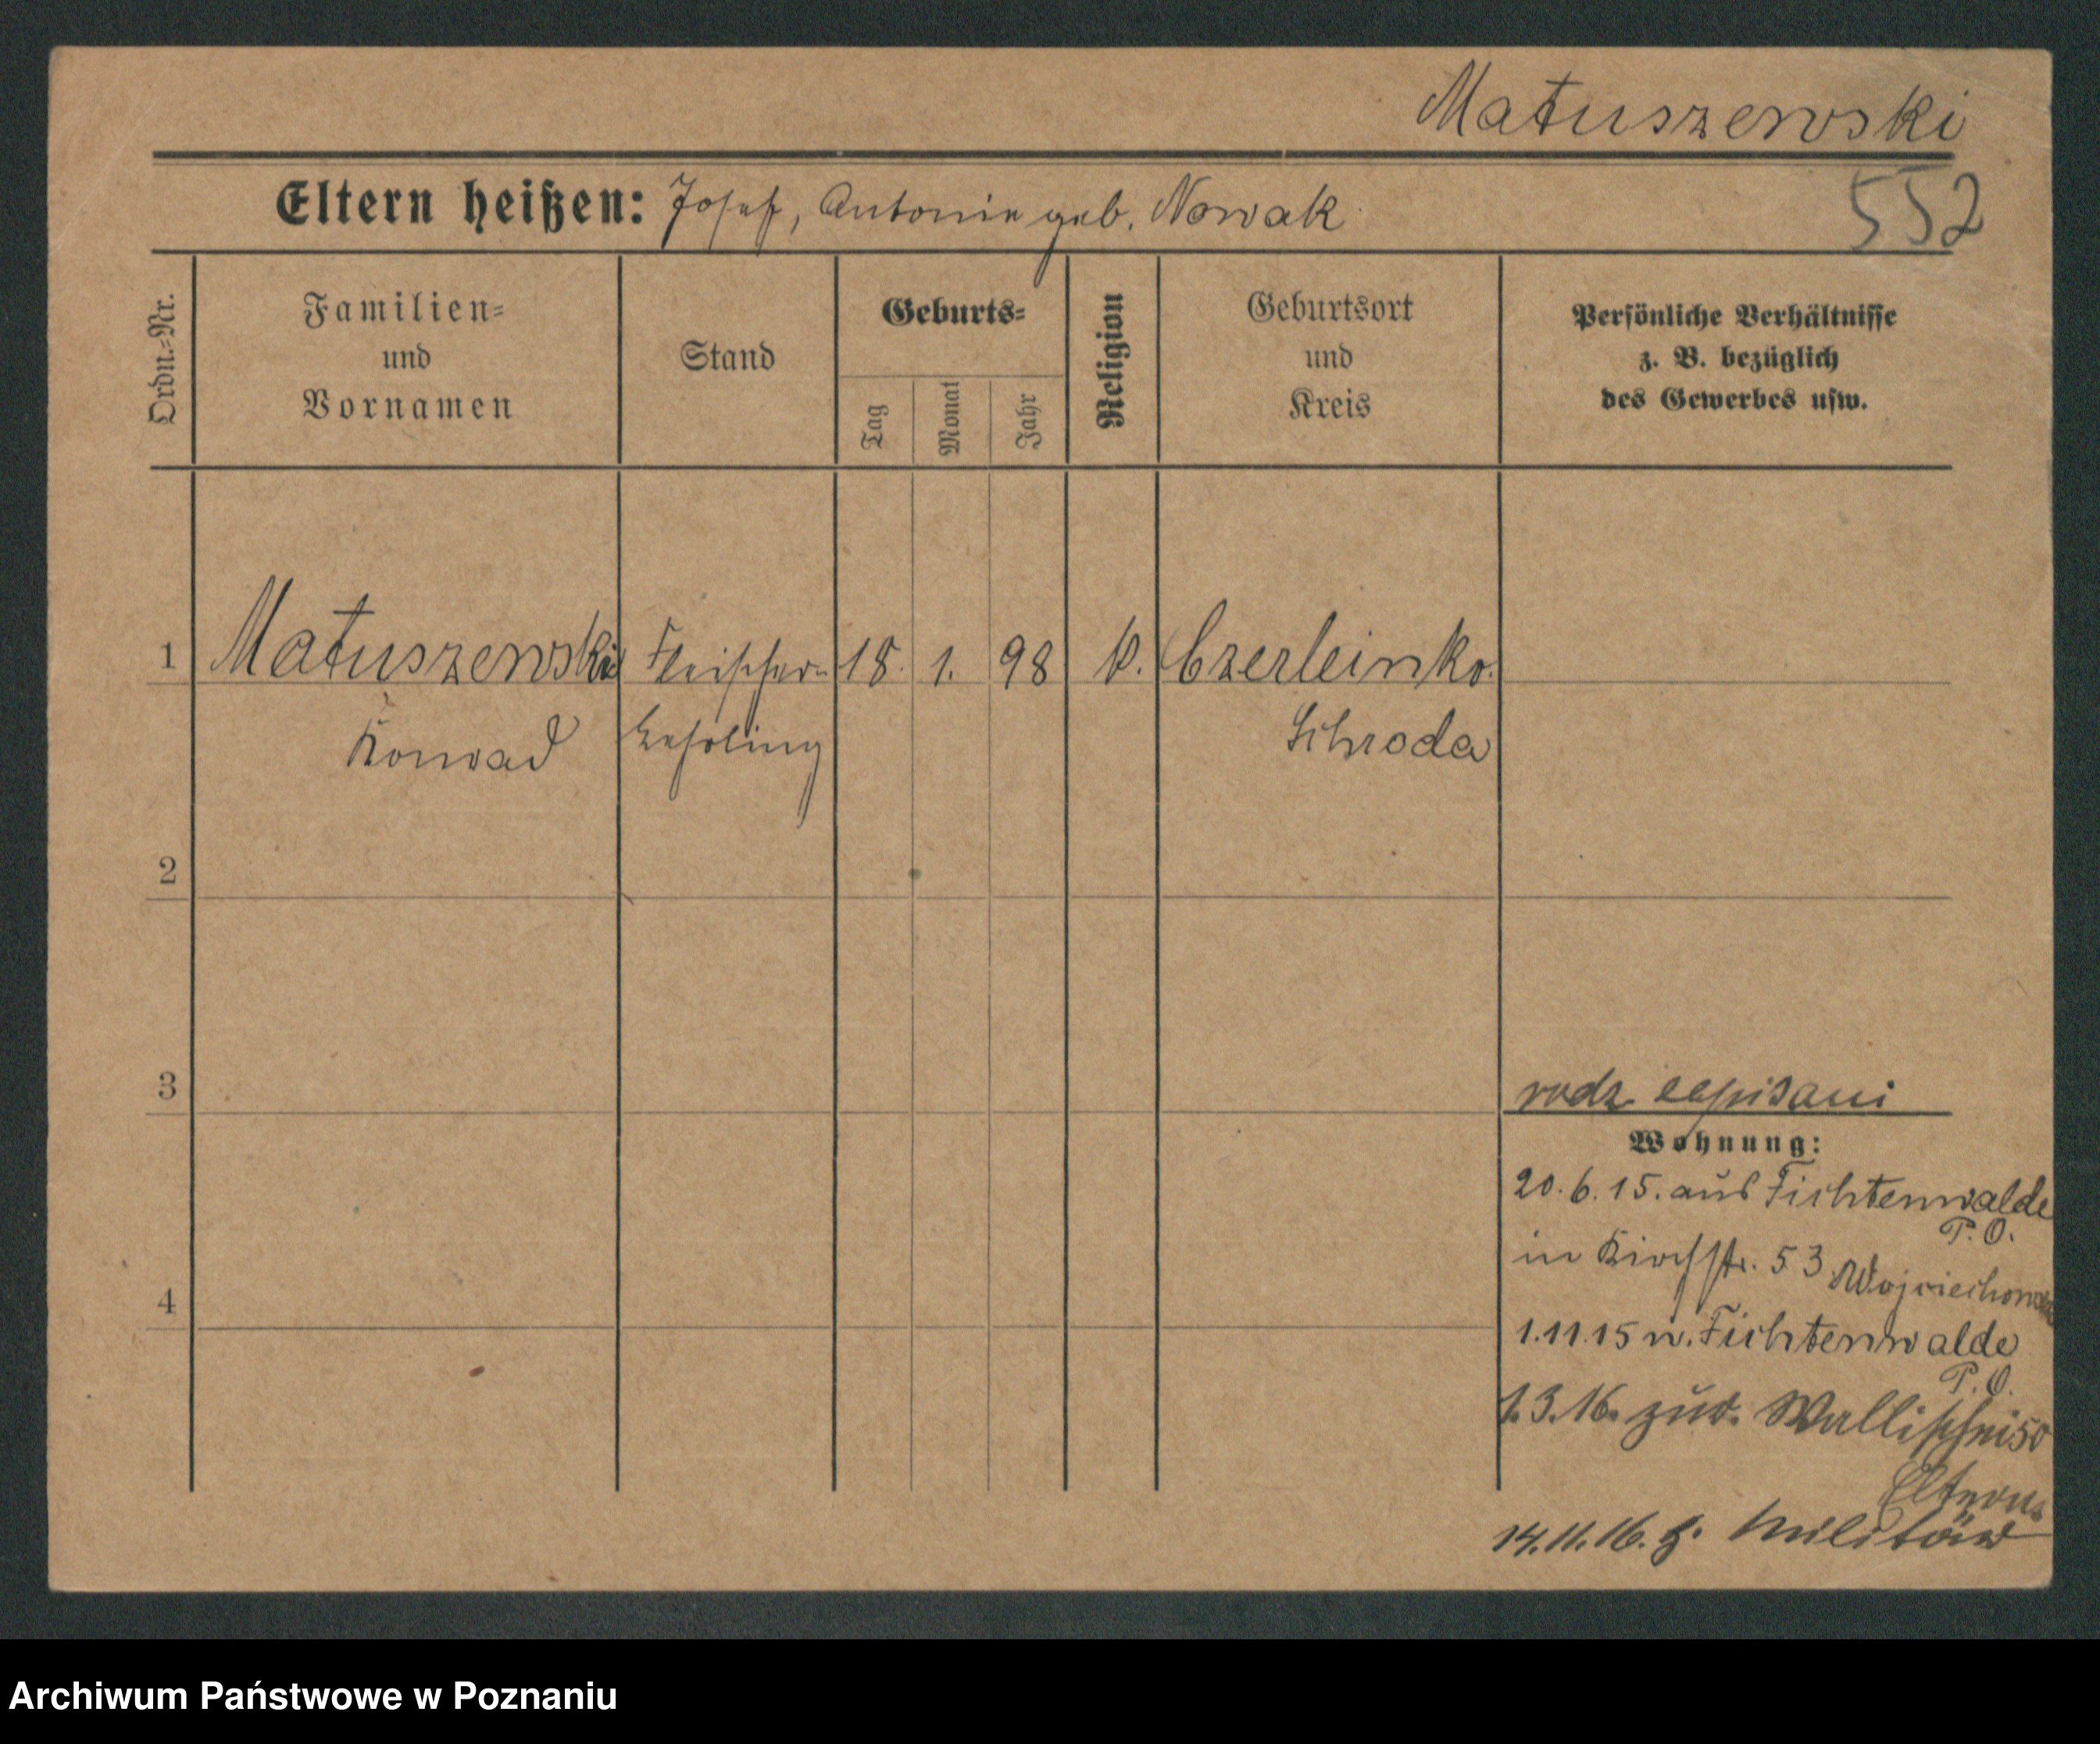 Matuszewski
552
Eltern heißen: Josef, Antonie geb. Nowak
Ordn.-Nr.
Familien-
und
Vornamen
Stand
Geburts-
Tag
Monat
Jahr
Religion
Geburtsort
und
Kreis
Persönliche Verhältnisse
z. B. bezüglich
des Gewerbes usw.
1
Matuszewski Fleischer- 18. 1. 98 k. Czerleinko.
Konrad Lehrling Schroda
2
3
rodz.
Wohnung:
20.6.15. aus Fichtenwalde
P. O.
in Kirchstr. 53 Wojciechowski
4
1.11.15 n. Fichtenwalde
P. O.
1.3.16. zur. Wallischei 50
Eltern.
14.11.16. z. Militär
Archiwum Państwowe w Poznaniu